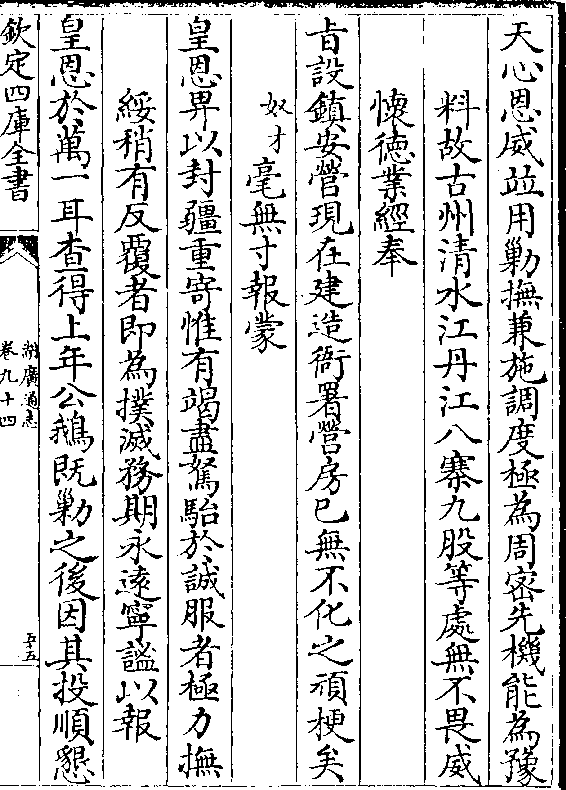 天心恩威並用勦撫兼施調度極為周密先機能為豫
料故古州清水江丹江八寨九股等處無不畏威
懷德業經奉
㫖設鎮安營現在建造衙署營房已無不化之頑梗矣
奴才毫無寸報蒙
皇恩畀以封疆重寄惟有竭盡駑駘於誠服者極力撫
綏稍有反覆者即為撲滅務期永遠寧謐以報
皇恩於萬一耳查得上年公鵝既勦之後因其投順懇
欽定四庫全書
湖廣通志
卷九十四
五五